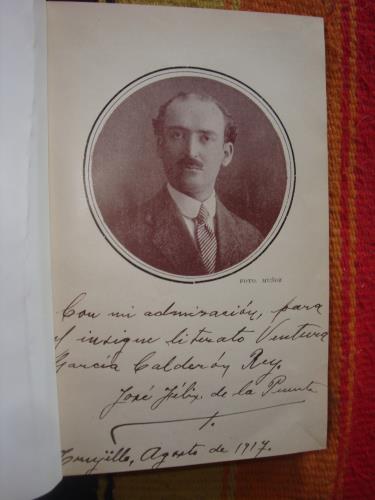 FOTO. MUÑOZ
Con mi admiración, para
el insigne literato Ventura
García Calderón Rey.
José Félix de la Puente
Trujillo, Agosto de 1917.